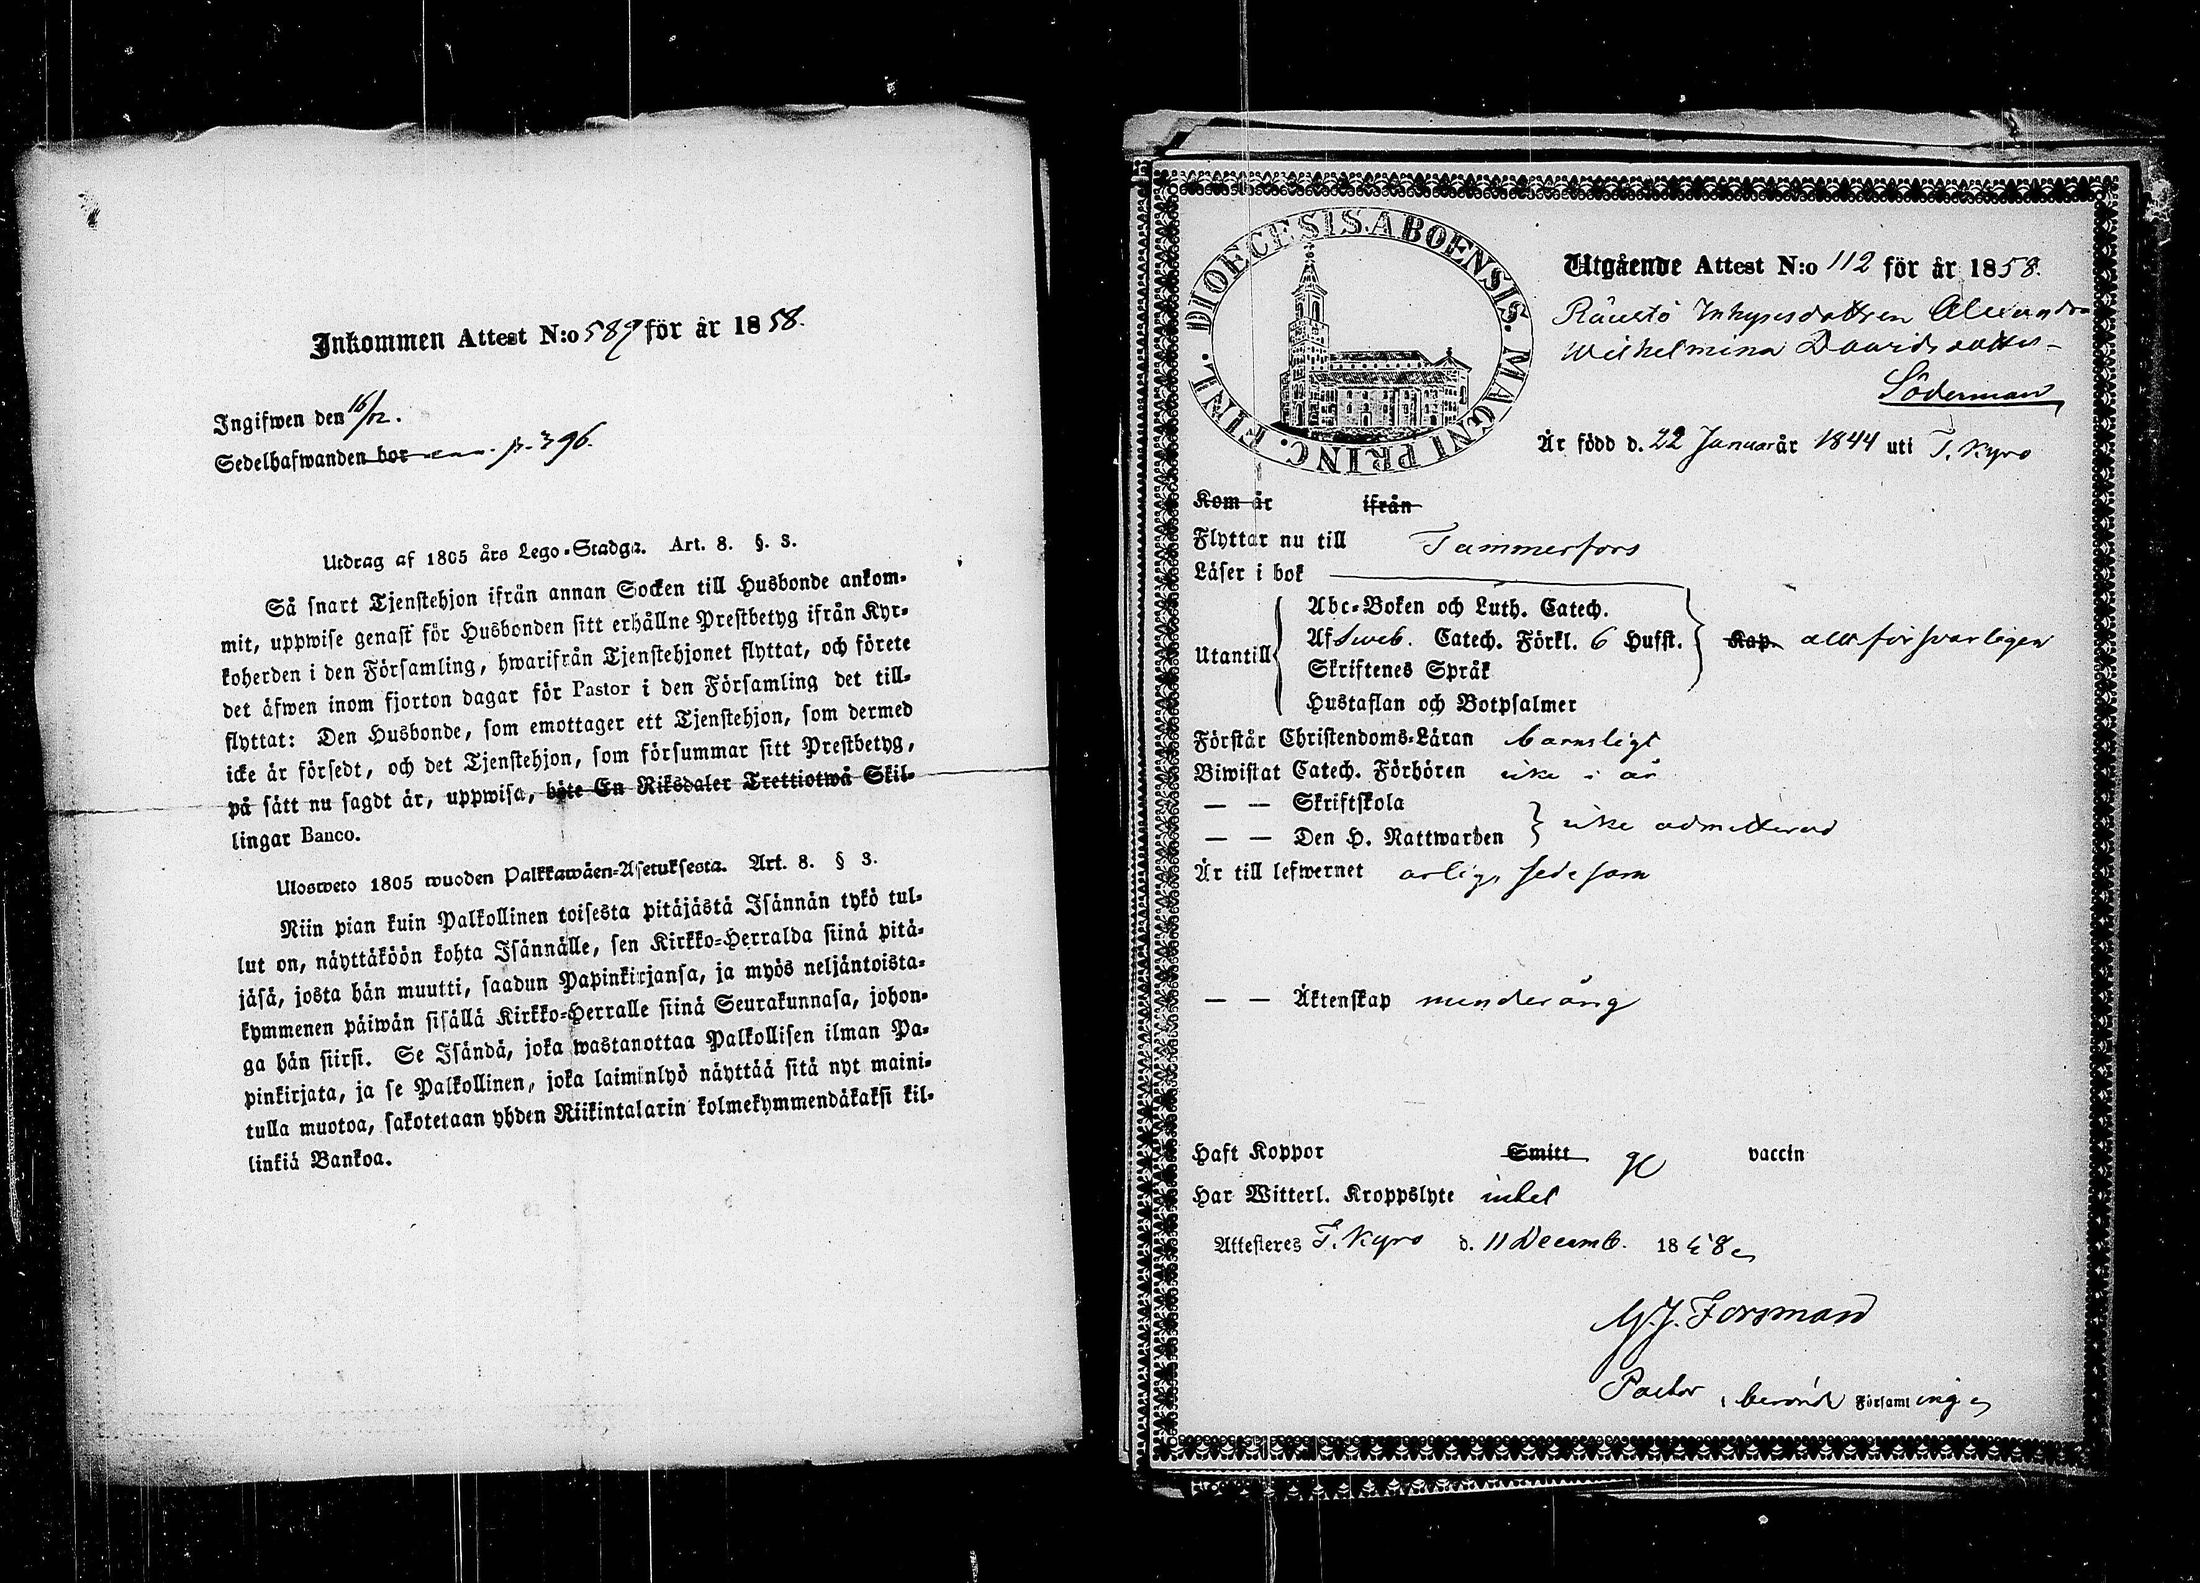 Inkommen Attest N:o 589 för år 1858.
Ingifwen den 16/12.
Sedelhafwanden bor p. 396.
Utdrag af 1805 års Lego-Stadga. Art. 8. §. 3.
Så snart Tjenstehjon ifrån annan Socken till Husbonde ankom-
mit, uppwise genast för Husbonden sitt erhållne Prestbetyg ifrån Kyr-
koherden i den Församling, hwarifrån Tjenstehjonet flyttat, och förete
det äfwen inom fjorton dagar för Pastor i den Församling det till-
flyttat: Den Husbonde, som emottager ett Tjenstehjon, som dermed
icke är försedt, och det Tjenstehjon, som försummar sitt Prestbetyg,
på sätt nu sagdt är, uppwisa, böte En Riksdaler Trettiotwå Skil-
lingar Banco.
Ulosweto 1805 wuoden Palkkawäen-Asetuksesta. Art. 8. § 3.
Niin pian kuin Palkollinen toisesta pitäjästä Isännän tykö tul-
lut on, näyttäköön kohta Isännälle, sen Kirkko-Herralda siinä pitä-
jäsä, josta hän muutti, saadun Papinkirjansa, ja myös neljäntoista-
kymmenen päiwän sisällä Kirkko-Herralle siinä Seurakunnasa, johon-
ga hän siirsi. Se Isändä, joka wastanottaa Palkollisen ilman Pa-
pinkirjata, ja se Palkollinen, joka laiminlyö näyttää sitä nyt maini-
tulla muotoa, sakotetaan yhden Riikintalarin kolmekymmendäkaksi kil-
linkiä Bankoa.
DIOECESIS. ABOENSIS. MAGNI PRINC. FINL.
Utgående Attest N:o 112 för år 1858.
Inhysesdottren Alexandra
Wilhelmina Davidsdotter
Söderman
Är född d. 22 Januar år 1844 uti T. Kyro
Kom år ifrån
Flyttar nu till Tammerfors
Läser i bok
Utantill
Abc-Boken och Luth. Catech.
Af Sveb. Catech. Förkl. 6 Hufst. Kap. allt försvarligen
Skriftenes Språk
Hustaflan och Botpsalmer
Förstår Christendoms-Läran barnsligt
Biwistat Catech. Förhören icke i år
— — Skriftskola
— — Den H. Nattwarden icke admitterad
Är till lefwernet ärlig, sedesam
— — Äktenskap minderårig
Haft Koppor Smitt vaccin
Har Witterl. Kroppslyte intet
Attesteres T. Kyro d. 11 Decemb. 1858
G. J. Forsman
Pastor i berörd Församlingen